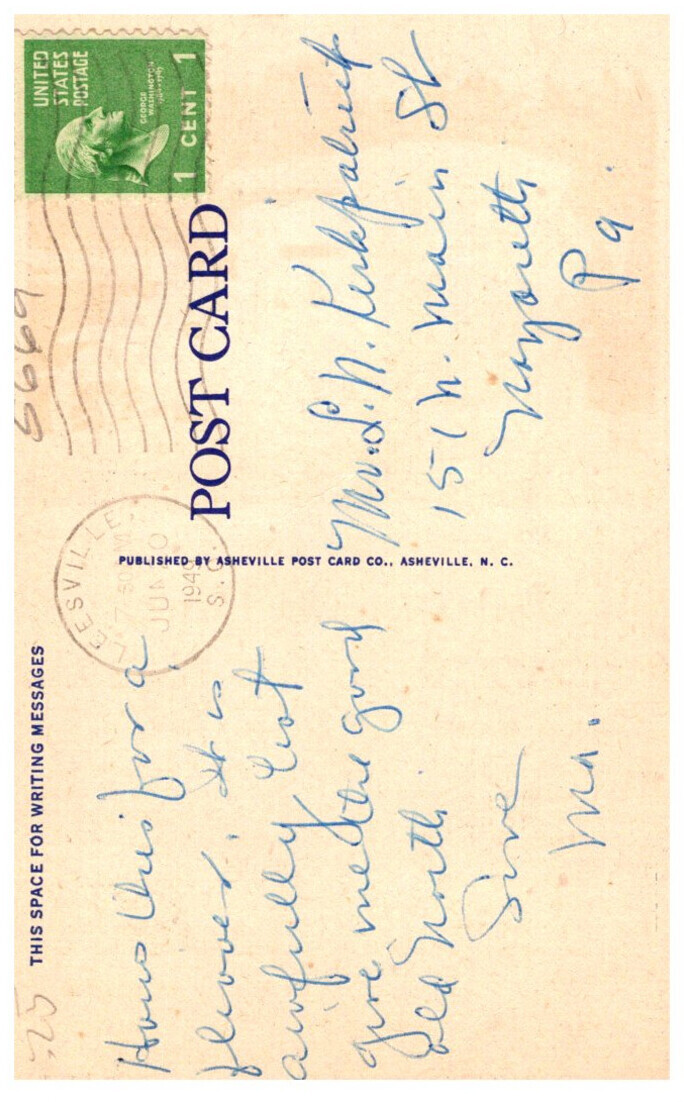 THIS SPACE FOR WRITING MESSAGES
Hows this for a
flower. It is
awfully hot
give me the good
old North
Love
Ma.
PUBLISHED BY ASHEVILLE POST CARD CO., ASHEVILLE, N. C.
POST CARD
LEESVILLE,
7
JUN
1949
S. C.
UNITED
STATES
POSTAGE
GEORGE
WASHINGTON
1 CENT 1
5669
.25
L. N. Kirkpatrick
151 N. Main St
Nazareth
Pa.